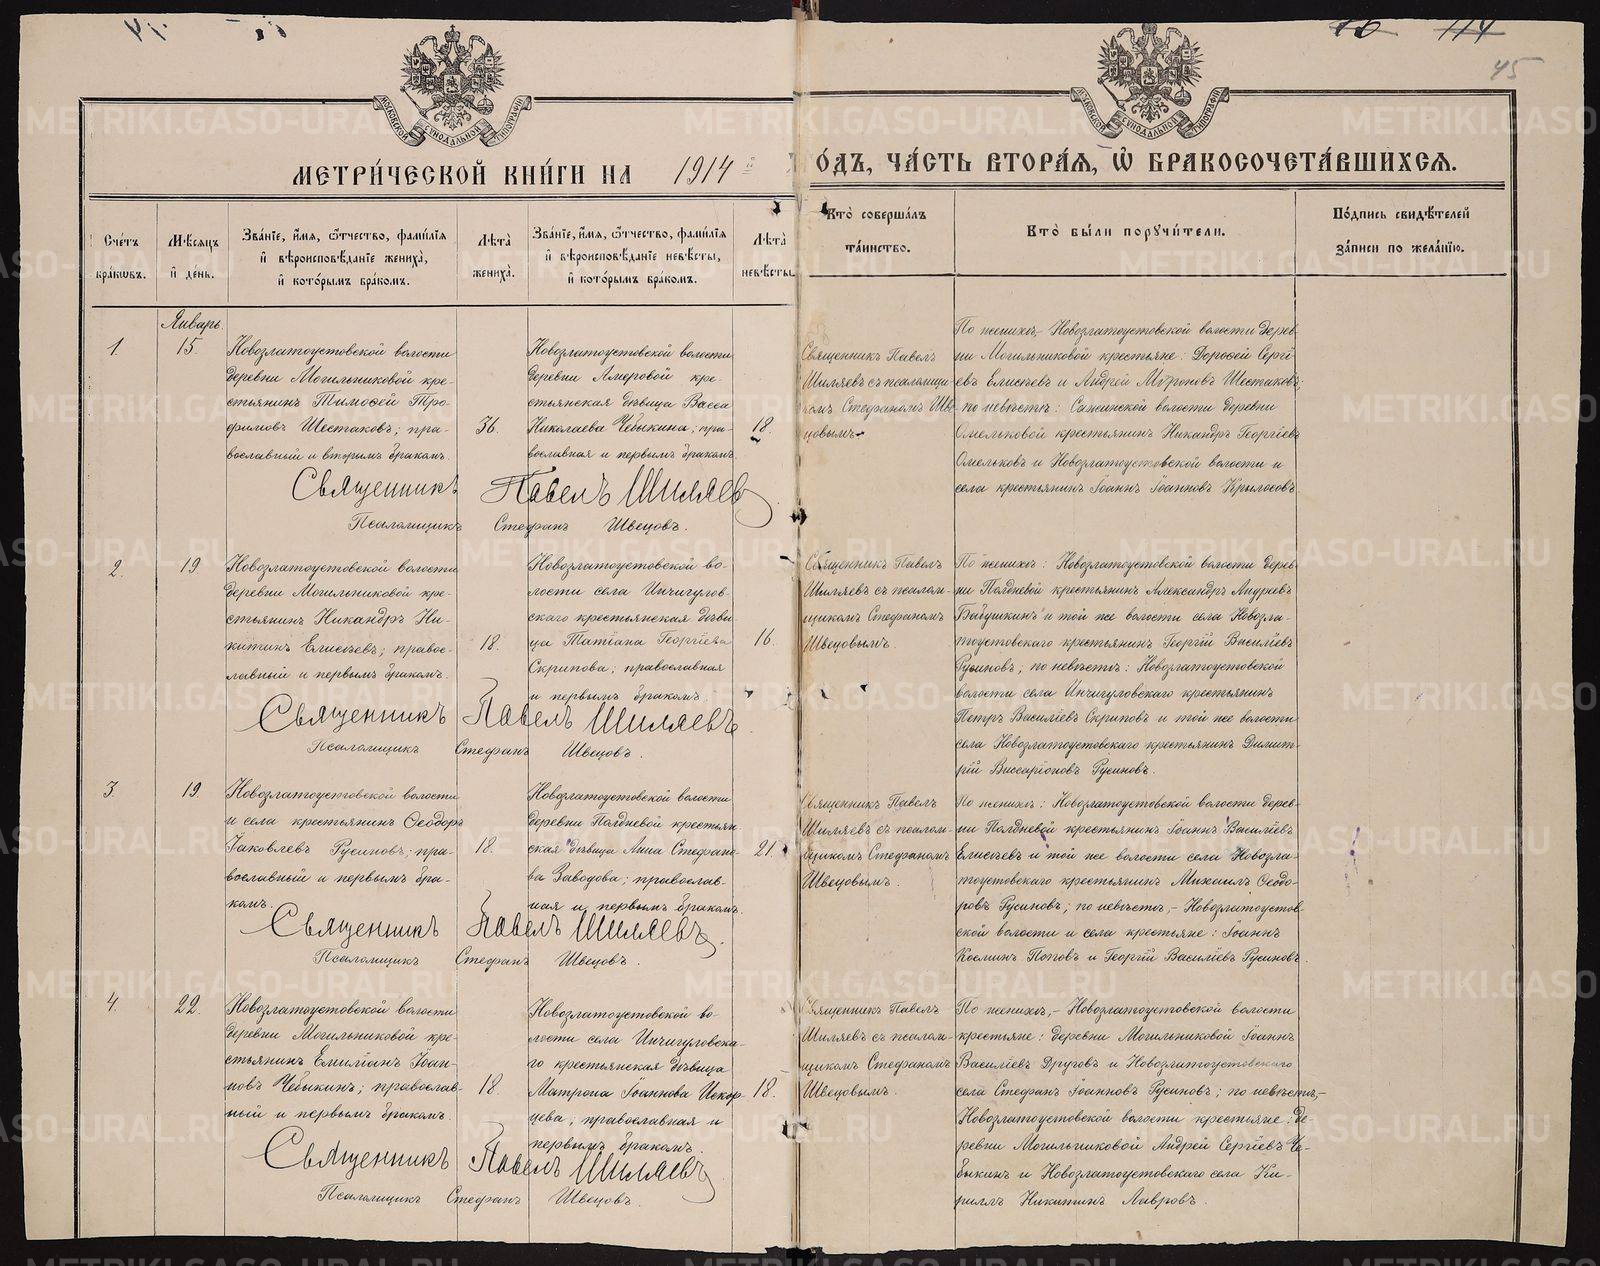 45
МОСКОВСКОЙ СѴНОДАЛЬНОЙ ТИПОГРАФІИ
МОСКОВСКОЙ СѴНОДАЛЬНОЙ ТИПОГРАФІИ
МЕТРИ́ЧЕСКОЙ КНИ́ГИ НА 1914 й
ГО́ДЪ, ЧА́СТЬ ВТОРА́Я, Ѽ БРАКОСОЧЕТА́ВШИХСЯ.
Сче́тъ бра́ковъ.
Мѣ́сяцъ и҆ де́нь.
Зва́нїе, и҆́мя, ѻ҆́тчество, фами́лїя и҆ вѣроисповѣ́данїе жениха̀, и҆ кото́рымъ бра́комъ.
Лѣ́та жениха̀.
Зва́нїе, и҆́мя, ѻ҆́тчество, фами́лїя и҆ вѣроисповѣ́данїе невѣ́сты, и҆ кото́рымъ бра́комъ.
Лѣ́та невѣ́сты.
Кто̀ соверша́лъ та́инство.
Кто̀ бы́ли поручи́тели.
По́дпись свидѣ́телей за́писи по жела́нїю.
Январь.
1.
15.
Новозлатоустовской волости
деревни Могильниковой кре-
стьянинъ Тимоѳей Тро-
фимовъ Шестаковъ; пра-
вославный и вторымъ бракомъ.
36.
Новозлатоустовской волости
деревни Амеровой кре-
стьянская дѣвица Васса
Николаева Чебыкина; пра-
вославная и первымъ бракомъ.
18.
Священникъ Павелъ
Шиляевъ съ псаломщи-
комъ Стефаномъ Шве-
цовымъ.
По женихѣ,- Новозлатоустовской волости дерев-
ни Могильниковой крестьяне: Дороѳей Сергі-
евъ Елисѣевъ и Андрей Мѵроновъ Шестаковъ;
по невѣстѣ: Сажинской волости деревни
Омельковой крестьянинъ Никандръ Георгіевъ
Омельковъ и Новозлатоустовской волости и
села крестьянинъ Іоаннъ Іоанновъ Крылосовъ.
Священникъ Павелъ Шиляевъ
Псаломщикъ Стефанъ Швецовъ.
2.
19.
Новозлатоустовской волости
деревни Могильниковой кре-
стьянинъ Никандръ Ни-
китинъ Елисѣевъ; правос-
лавный и первымъ бракомъ.
18.
Новозлатоустовской во-
лости села Инчигулов-
скаго крестьянская дѣви-
ца Татіана Георгіева
Скрипова; православная
и первымъ бракомъ.
16.
Священникъ Павелъ
Шиляевъ съ псалом-
щикомъ Стефаномъ
Швецовымъ.
По женихѣ: Новозлатоустовской волости дерев-
ни Полдневой крестьянинъ Александръ Андреевъ
Бабушкинъ и той же волости села Новозла-
тоустовскаго крестьянинъ Георгій Василіевъ
Русиновъ; по невѣстѣ: Новозлатоустовской
волости села Инчигуловскаго крестьянинъ
Петръ Василіевъ Скриповъ и той же волости
села Новозлатоустовскаго крестьянинъ Димит-
рій Виссаріоновъ Русиновъ.
Священникъ Павелъ Шиляевъ.
Псаломщикъ Стефанъ Швецовъ.
3.
19.
Новозлатоустовской волости
и села крестьянинъ Ѳеодоръ
Іаковлевъ Русиновъ; пра-
вославный и первымъ бра-
комъ.
18.
Новозлатоустовской волости
деревни Полдневой крестьян-
ская дѣвица Анна Стефано-
ва Заводова; православ-
ная и первымъ бракомъ.
21.
Священникъ Павелъ
Шиляевъ съ псалом-
щикомъ Стефаномъ
Швецовымъ.
По женихѣ: Новозлатоустовской волости дерев-
ни Полдневой крестьянинъ Іоаннъ Василіевъ
Елисѣевъ и той же волости села Новозла-
тоустовскаго крестьянинъ Михаилъ Ѳеодо-
ровъ Русиновъ; по невѣстѣ,- Новозлатоустов-
ской волости и села крестьяне: Іоаннъ
Косминъ Поповъ и Георгій Василіевъ Русиновъ.
Священникъ Павелъ Шиляевъ.
Псаломщикъ Стефанъ Швецовъ.
4.
22.
Новозлатоустовской волости
деревни Могильниковой кре-
стьянинъ Емиліанъ Іоан-
новъ Чебыкинъ; православ-
ный и первымъ бракомъ.
18.
Новозлатоустовской во-
лости села Инчигуловска-
го крестьянская дѣвица
Матрона Іоаннова Искор-
цева; православная и
первымъ бракомъ.
18.
Священникъ Павелъ
Шиляевъ съ псалом-
щикомъ Стефаномъ
Швецовымъ.
По женихѣ,- Новозлатоустовской волости
крестьяне: деревни Могильниковой Іоаннъ
Василіевъ Друговъ и Новозлатоустовскаго
села Стефанъ Іоанновъ Русиновъ; по невѣстѣ,-
Новозлатоустовской волости крестьяне: де-
ревни Могильниковой Андрей Сергіевъ Че-
быкинъ и Новозлатоустовскаго села Ки-
риллъ Никитинъ Лавровъ.
Священникъ Павелъ Шиляевъ
Псаломщикъ Стефанъ Швецовъ.
METRIKI.GASO-URAL.RU